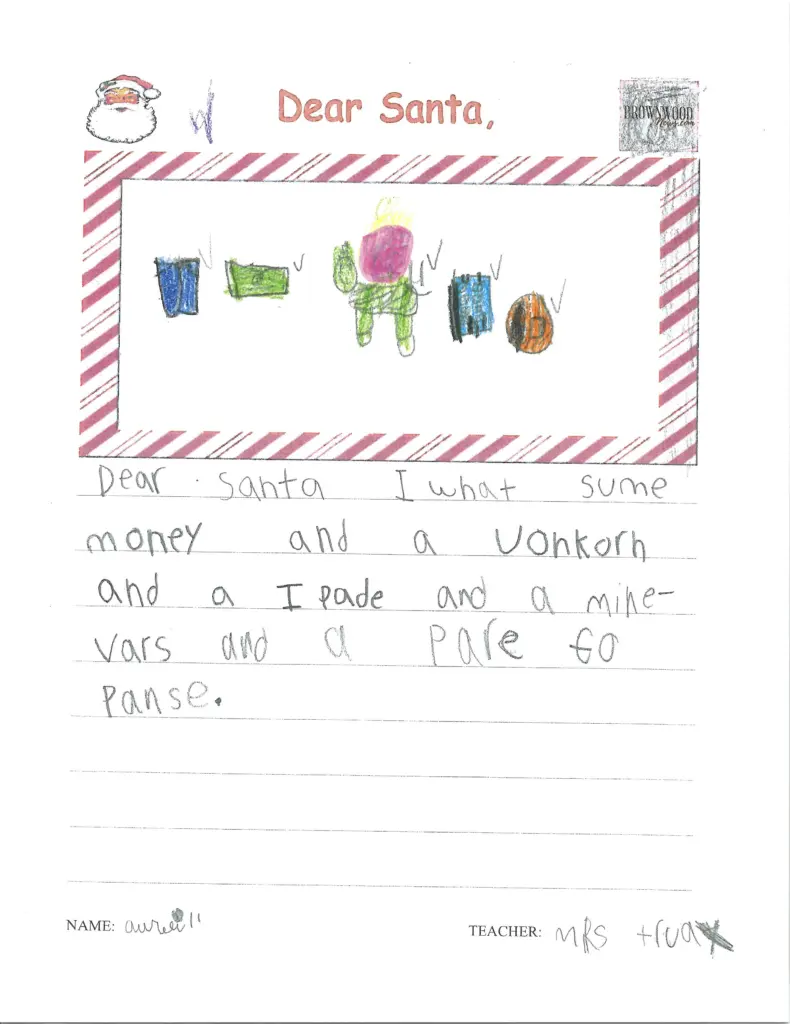 Dear Santa,
BROWNWOOD
News.com
Dear Santa I what sume
money and a vonkorn
and a I pade and a mine-
vars and a pare fo
panse.
NAME:
TEACHER: MRS truax